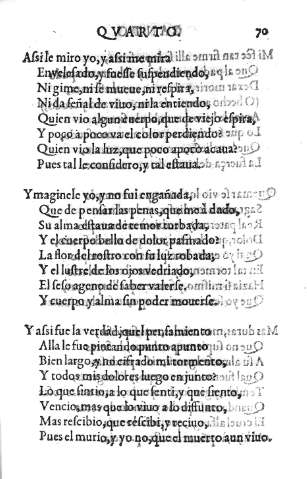 QVARTO. 70
Assi le miro yo, y assi me miro
Envelosado, y fuesse suspendiendo,
Ni gime, ni se mueue, ni respira,
Ni da señal de viuo, ni la entiendo,
Quien vio algun cuerpo, que de viejo espira,
Y poco a poco va el color perdiendo?
Quien vio la luz, que poco a poco acaua?
Pues tal le considero, y tal estaua.
Y maginele yo, y no fui engañada,
Que de pensar las penas, que me à dado,
Su alma estaua de temor turbada,
Y el cuerpo bello de dolor pasmado?
La flor del rostro con su luz robada,
Y el lustre de los ojos vedriado,
El seso ageno de saber valerse,
Y cuerpo y alma sin poder mouerse.
Y assi fue la verdad, q̃ el pensamiento
Alla le fue pintando punto a punto
Bien largo, y no cifrado mi tormento,
Y todos mis dolores luego en junto?
Lo que sintio, a lo que senti, y que siento,
Vencio, mas que lo viuo a lo difunto,
Mas rescibio, que rescibi, y reciuo,
Pues el murio, y yo no, que el muerto aun viuo.